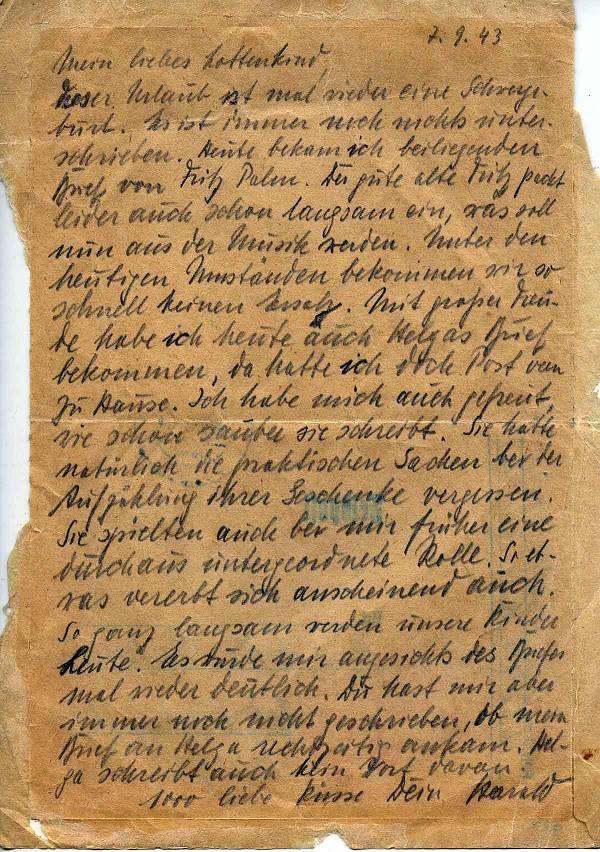 7. 9. 43
Mein liebes Lottenkind,
dieser Urlaub ist mal wieder eine Schwerge-
burt. Es ist immer noch nichts unter-
schrieben. Heute bekam ich beiliegenden
Brief von Fritz Palm. Der gute alte Fritz packt
leider auch schon langsam ein, was soll
nun aus der Musik werden. Unter den
heutigen Umständen bekommen wir so
schnell keinen Ersatz. Mit großer Freu-
de habe ich heute auch Helgas Brief
bekommen, da hatte ich doch Post von
zu Hause. Ich habe mich auch gefreut,
wie schön sauber sie schreibt. Sie hatte
natürlich die praktischen Sachen bei der
Aufzählung ihrer Geschenke vergessen.
Sie spielten auch bei mir früher eine
durchaus untergeordnete Rolle. So et-
was vererbt sich anscheinend auch.
So ganz langsam werden unsere Kinder
Leute. Es wurde mir angesichts des Briefes
mal wieder deutlich. Du hast mir aber
immer noch nicht geschrieben, ob mein
Brief an Helga rechtzeitig ankam. Hel-
ga schreibt auch kein Wort davon
1000 liebe Küsse Dein Harald